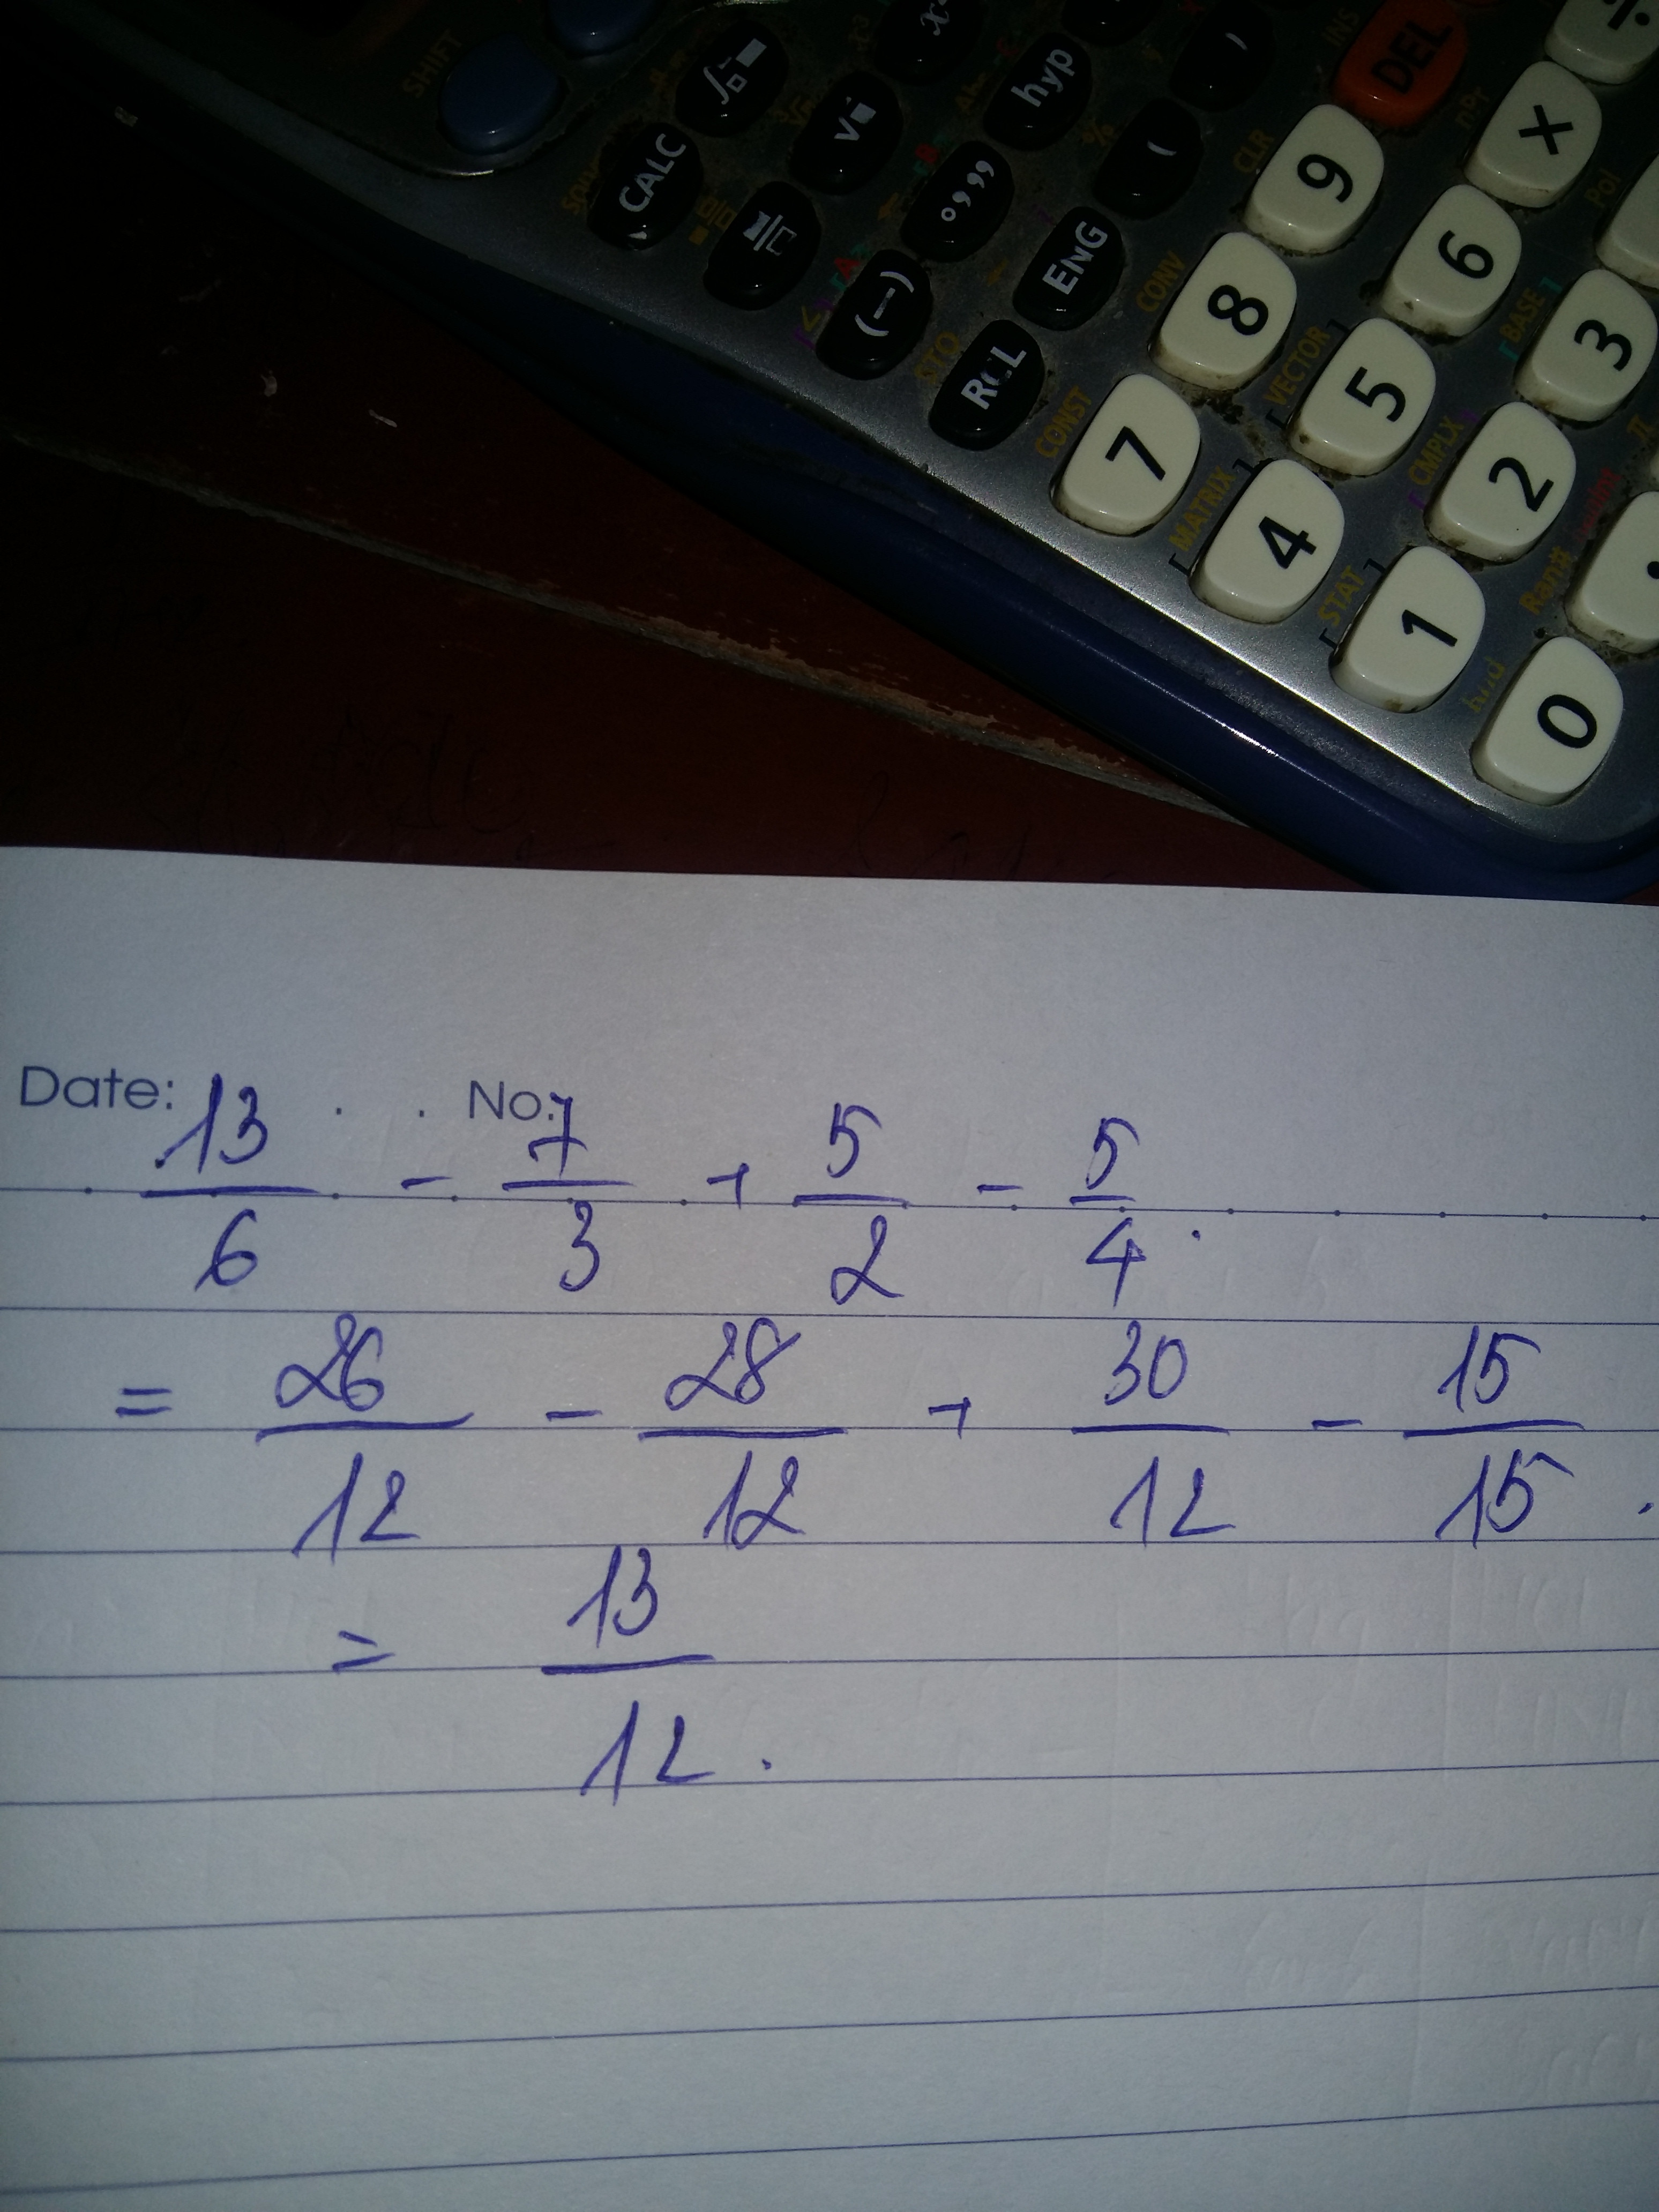 SHIFT
CALC
hyp
(
)
INS
DEL
(—)
°,,,
ENG
RCL
STO
CLR
CONV
CONST
nPr
Pol
9
×
÷
8
6
7
5
3
4
2
1
0
MATRIX
VECTOR
STAT
CMPLX
BASE
Ran#
π
Date: . . No.
13/6 - 7/3 + 5/2 - 5/4 .
= 26/12 - 28/12 + 30/12 - 15/15 .
= 13/12 .